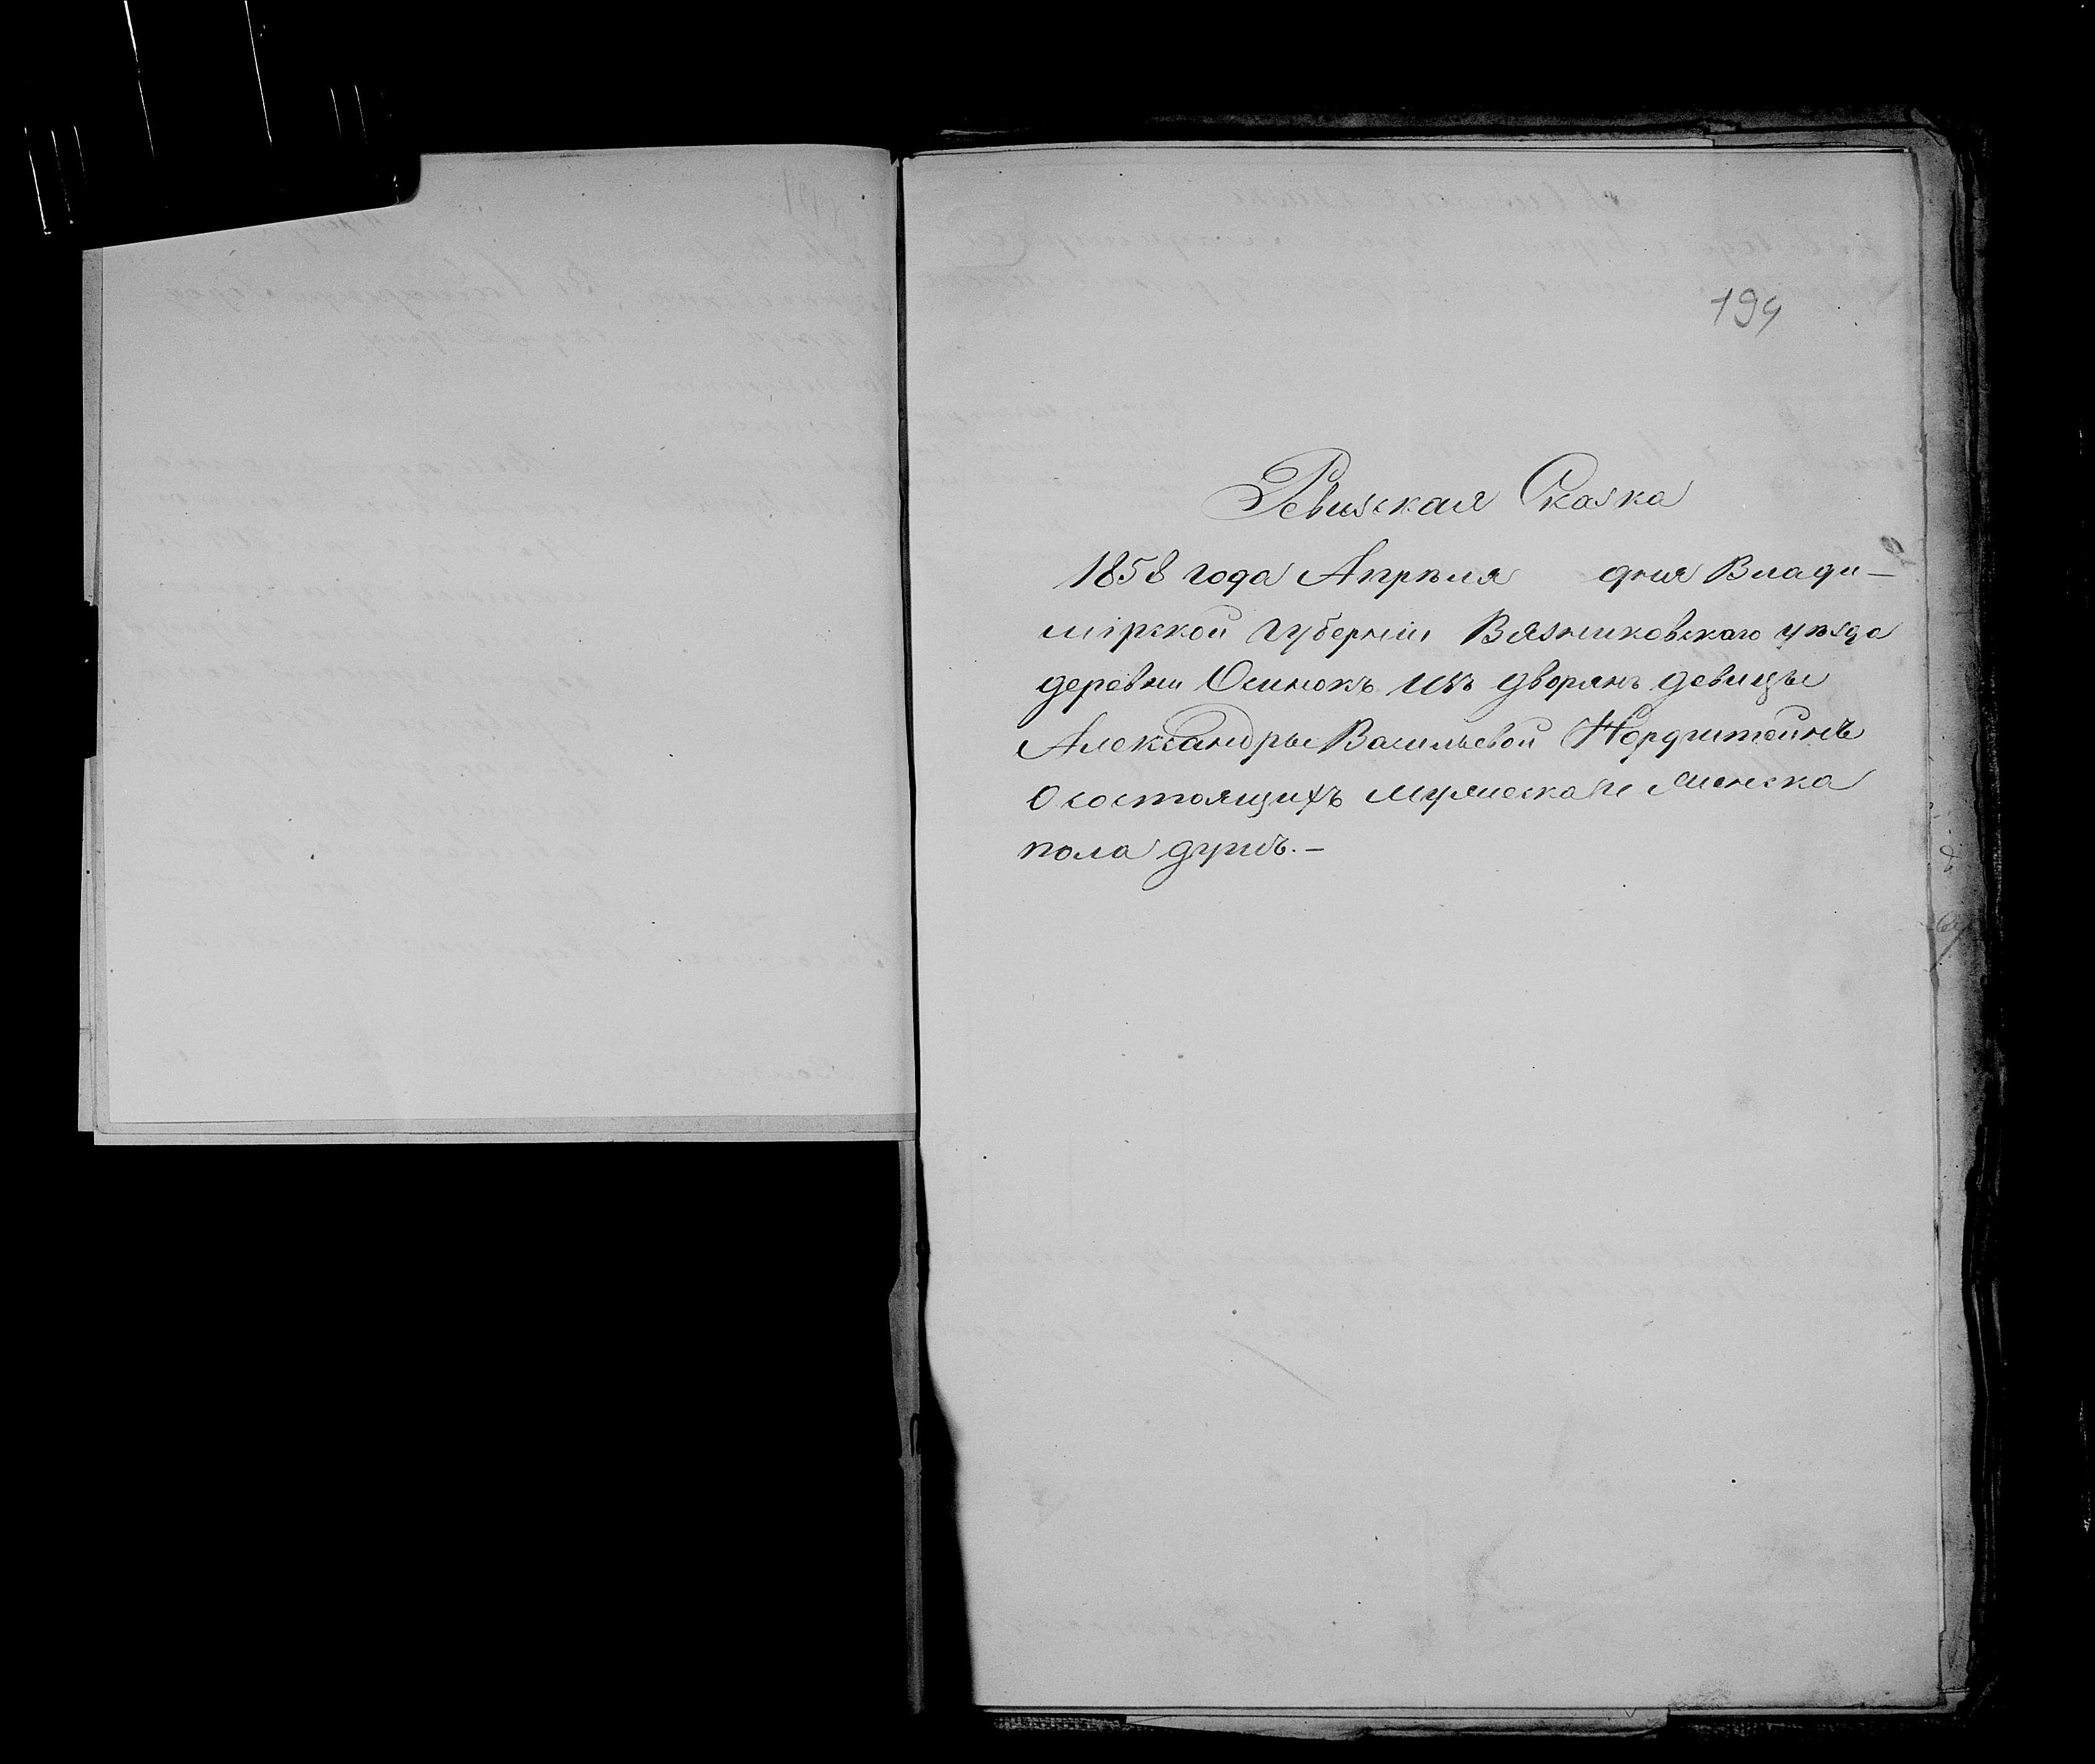 194
Ревизская Сказка
1858 года Апрѣля дня Влади-
мірской Губерніи Вязниковскаго уѣзда
деревни Осинокъ изъ дворянъ девицы
Александры Васильевой Нордштейнъ
О состоящихъ мужеска и женска
пола душъ.-